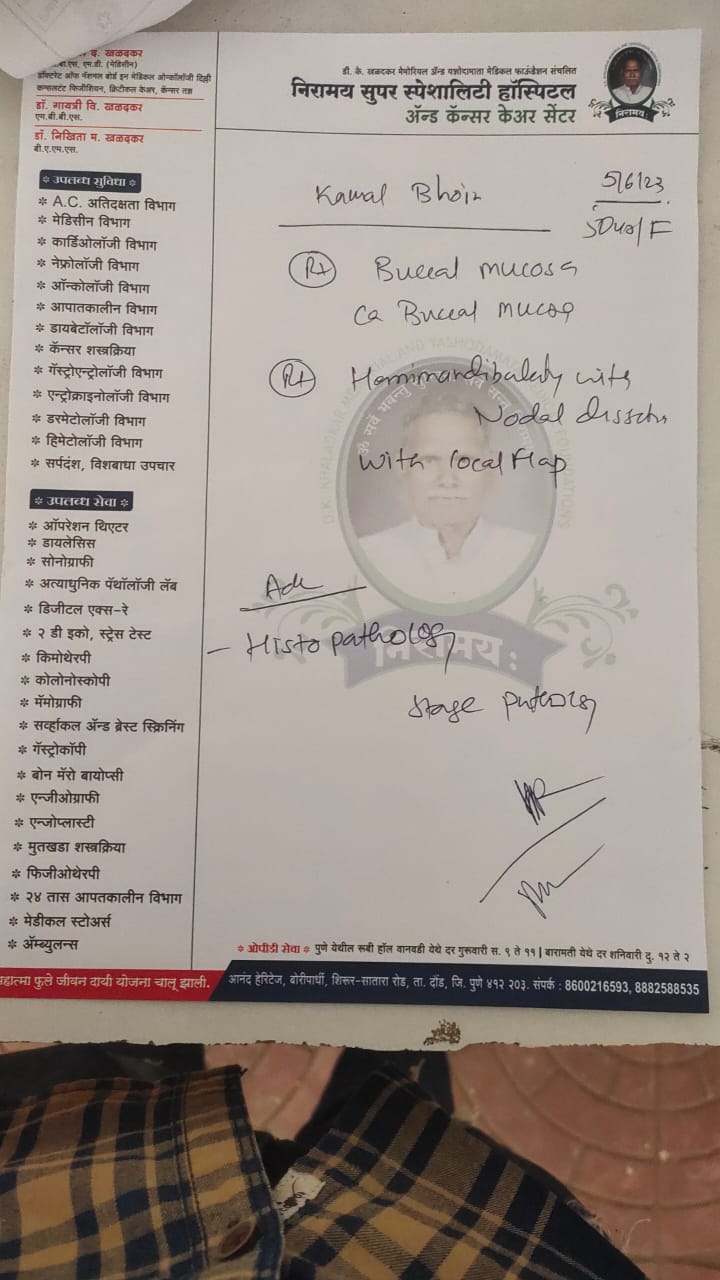 द. खळदकर
बी.एस. एम.डी. (मेडिसीन)
डॉक्टरेट ऑफ नॅशनल बोर्ड इन मेडिकल ऑन्कॉलॉजी दिल्ली
कन्सलटंट फिजीशियन, क्रिटीकल केअर, कॅन्सर तज्ञ
डॉ. गायत्री वि. खळदकर
एम.बी.बी.एस.
डॉ. निखिता म. खळदकर
बी.ए.एम.एस.
डी. के. खळदकर मेमोरियल ॲन्ड यशोदामाता मेडिकल फाऊंडेशन संचलित
निरामय सुपर स्पेशालिटी हॉस्पिटल
ॲन्ड कॅन्सर केअर सेंटर
निरामय:
* उपलब्ध सुविधा *
* A.C. अतिदक्षता विभाग
* मेडिसीन विभाग
* कार्डिओलॉजी विभाग
* नेफ्रोलॉजी विभाग
* ऑन्कोलॉजी विभाग
* आपातकालीन विभाग
* डायबेटॉलॉजी विभाग
* कॅन्सर शस्त्रक्रिया
* गॅस्ट्रोएन्ट्रोलॉजी विभाग
* एन्ट्रोक्राइनोलॉजी विभाग
* डरमेटोलॉजी विभाग
* हिमेटोलॉजी विभाग
* सर्पदंश, विशबाधा उपचार
* उपलब्ध सेवा *
* ऑपरेशन थिएटर
* डायलेसिस
* सोनोग्राफी
* अत्याधुनिक पॅथॉलॉजी लॅब
* डिजीटल एक्स-रे
* २ डी इको, स्ट्रेस टेस्ट
* किमोथेरपी
* कोलोनोस्कोपी
* मॅमोग्राफी
* सर्व्हाकल ॲन्ड ब्रेस्ट स्क्रिनिंग
* गॅस्ट्रोकॉपी
* बोन मॅरो बायोप्सी
* एन्जीओग्राफी
* एन्जोप्लास्टी
* मुतखडा शस्त्रक्रिया
* फिजीओथेरपी
* २४ तास आपतकालीन विभाग
* मेडीकल स्टोअर्स
* ॲम्ब्युलन्स
Kamal Bhoir
5/6/23
Rt Buccal mucosa
Ca Buccal mucosa
Rt Hemimandibulectomy with
Nodal dissection
with local Flap
Adv
- Histopathology
Stage pathology
निरामय:
* ओपीडी सेवा * पुणे येथील रूबी हॉल वानवडी येथे दर गुरूवारी स. ९ ते ११ | बारामती येथे दर शनिवारी दु. १२ ते २
महात्मा फुले जीवन दायी योजना चालू झाली.
आनंद हेरिटेज, बोरीपार्धी, शिरूर-सातारा रोड, ता. दौंड, जि. पुणे ४१२ २०३. संपर्क : 8600216593, 8882588535